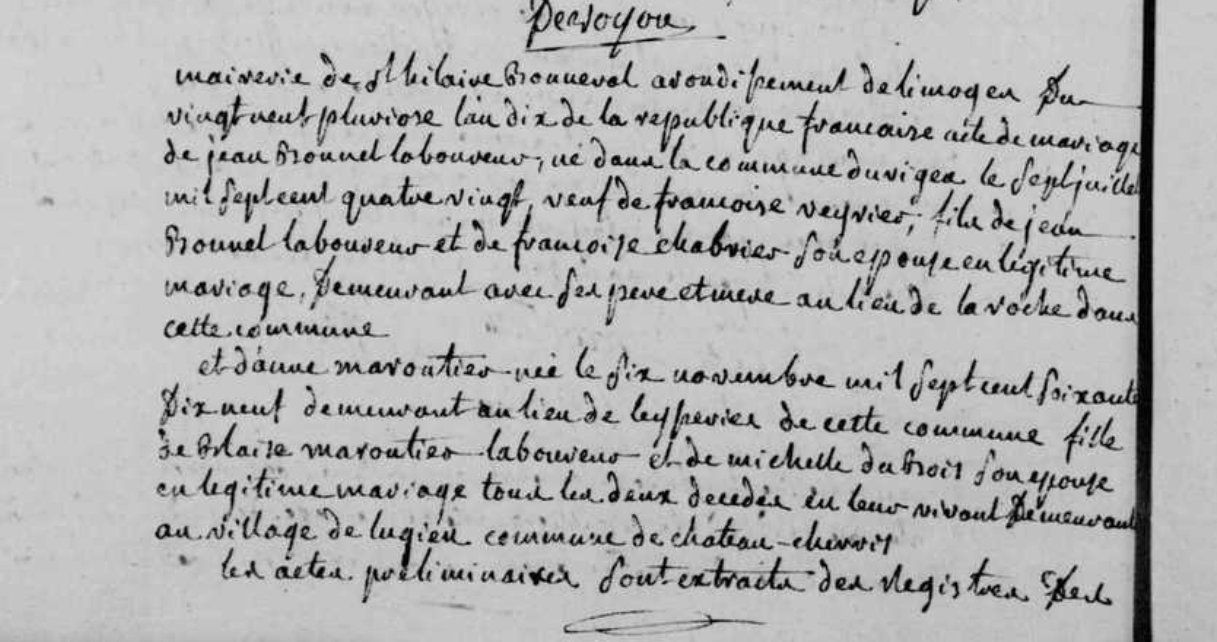 Desroyou
mairerie de St hilaire Bonneval arondissement de limoges Du
vingt neuf pluviose l'an dix de la republique francaise acte de mariage
de jean Bonnel laboureur, né dans la commune du vigen le sept juillet
mil sept cent quatre vingt, veuf de francoise veyrier, fils de jean
Bonnel laboureur et de francoise chabrier son epouse en legitime
mariage, Demeurant avec ses pere et mere au lieu de la roche dans
cette commune
et d'anne maroutier née le six novembre mil sept cent soixante
Dix neuf demeurant au lieu de leysperier de cette commune fille
de Blaise maroutier laboureur et de michelle du Bois son epouse
en legitime mariage tous les deux decedés en leur vivant Demeurant
au village de lugien commune de château-chervis
les actes préliminaires sont extraits des Registres Des